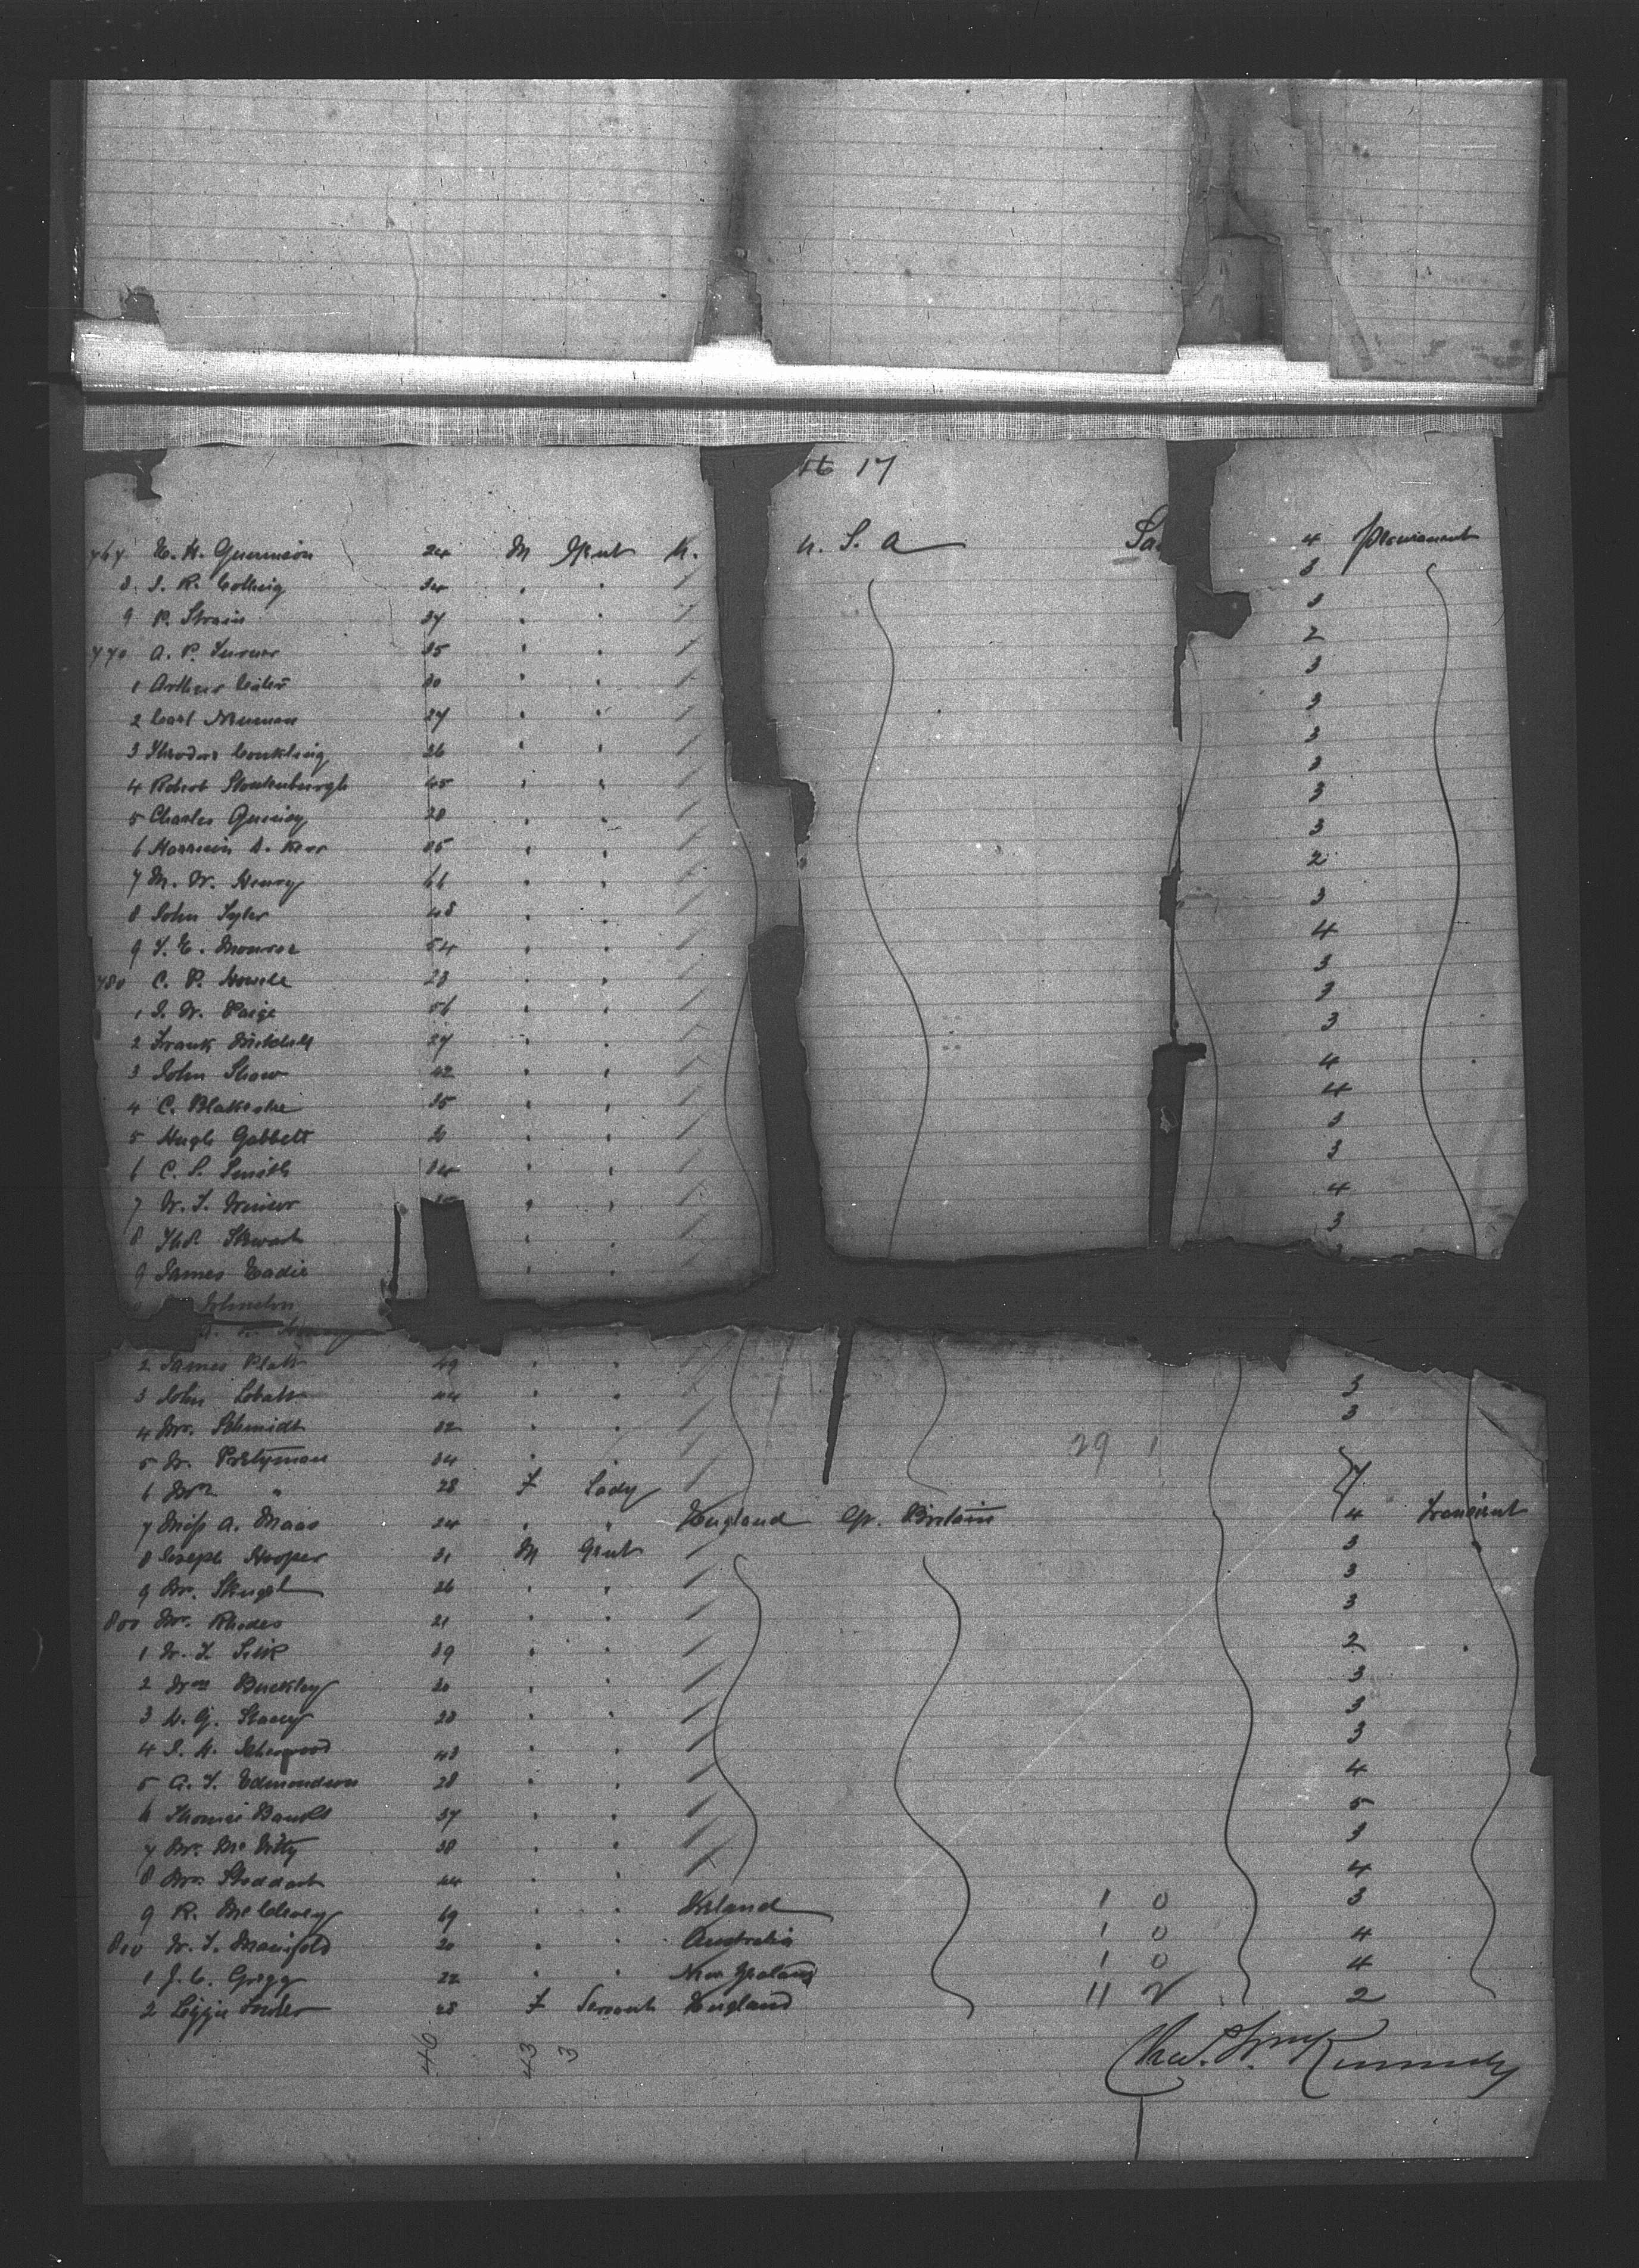 16 17
767 E. H. Gunnison 24 M Gent U. U. S. A Sa 4 Permanent
8 J. R. Colling 34 3
9 P. Strain 37 3
770 A. P. Turner 35 2
1 Arthur 30 3
2 Carl Neuman 27 3
3 Theodor Conkling 26 3
4 Robert Stoutenburgh 45 3
5 Charles 28 3
6 Harrison D. Kerr 35 3
7 M. W. Henry 66 2
8 John Tyler 48 3
9 T. E. Monroe 54 4
780 C. P. Howell 28 3
1 J. W. Paige 56 3
2 Frank Mitchell 27 3
3 John Shaw 42 4
4 C. Blakeslee 35 4
5 Hugh Gabbett 3
6 C. S. Smith 34 3
7 W. T. 4
8 Thos Stewart 3
9 James Eadie
Johnston
2 James Platt 49
3 John 44 3
4 Mr. Schmidt 32 3
5 W. Pretyman 34 29 1
6 Mrs " 28 F Lady 7
7 Miss A. Maas 24 " " England Gr. Britain 4 Transient
8 Joseph Hooper 31 M Gent 3
9 Mr. 26 3
800 Mr. Rhodes 21 3
1 W. T. Silk 39 2
2 Wm Buckley 20 3
3 W. G. Stacey 28 3
4 J. H. Sherwood 43 3
5 A. T. Edmondson 28 4
6 Thomas 37 5
7 Mr. McVitty 38 3
8 Stoddart 44 4
9 R. McElroy 19 Ireland 1 0 3
810 W. T. Manifold 20 Australia 1 0 4
1 J. C. Grigg 22 New Zealand 1 0 4
2 Lizzie 28 F Servant England 11 2
46 43 3
Kennedy